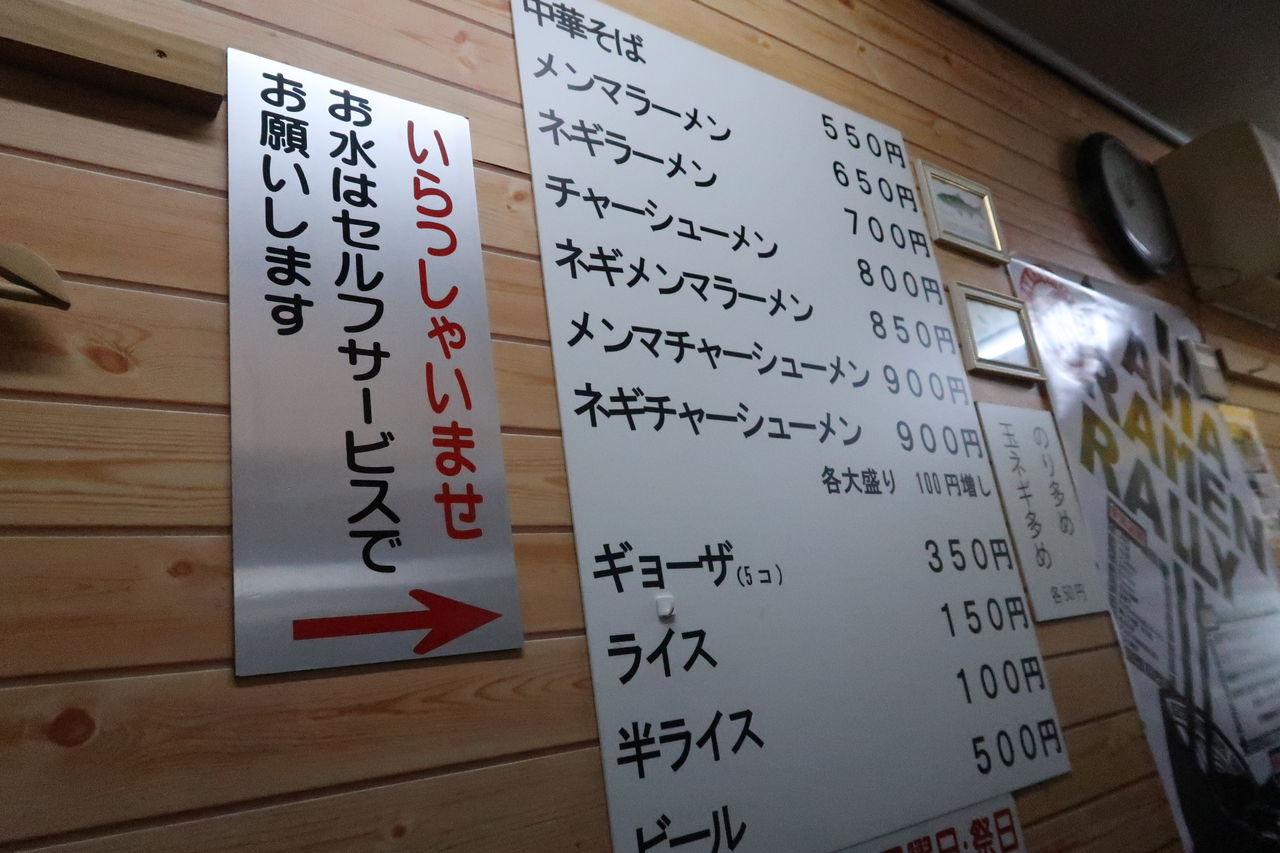 いらっしゃいませ
お水はセルフサービスで
お願いします
中華そば 550円
メンマラーメン 650円
ネギラーメン 700円
チャーシューメン 800円
ネギメンマラーメン 850円
メンマチャーシューメン 900円
ネギチャーシューメン 900円
各大盛り 100円増し
ギョーザ(5コ) 350円
ライス 150円
半ライス 100円
ビール 500円
のり多め
玉ネギ多め
各50円
RAMEN
RALLY
曜日・祭日